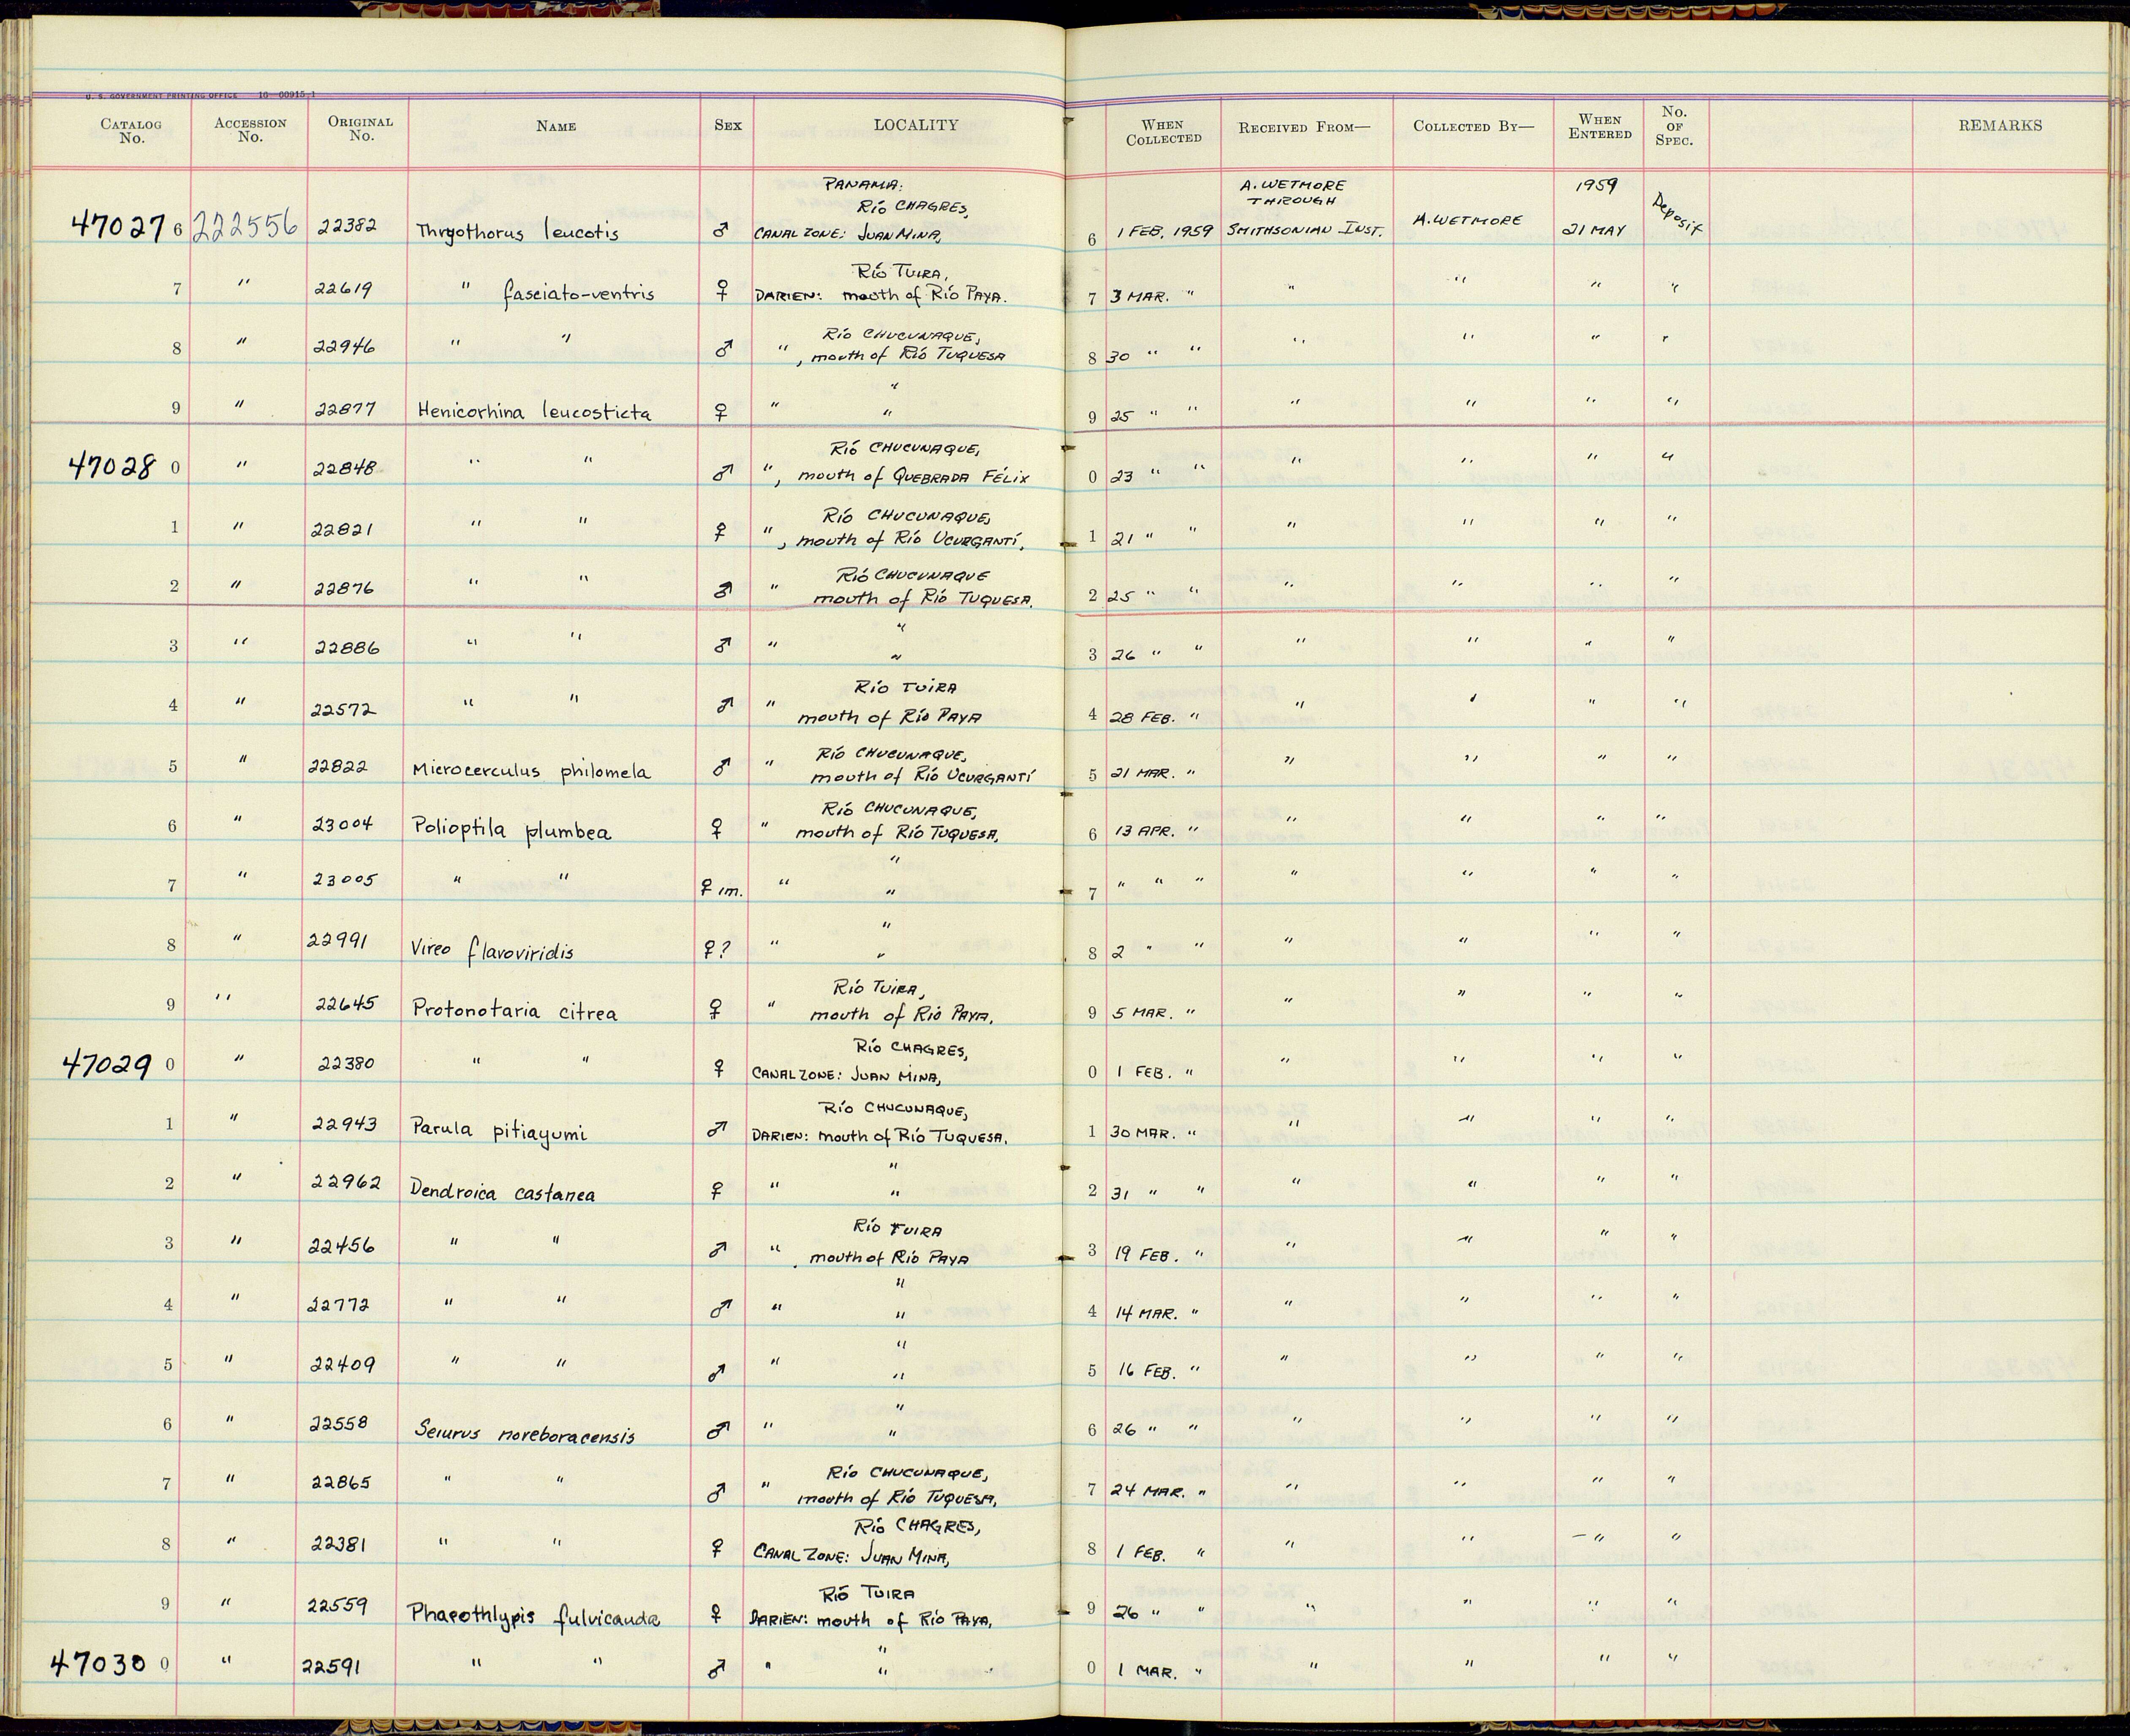 U. S. GOVERNMENT PRINTING OFFICE 16—60915-1
CATALOG No. ACCESSION No. ORIGINAL No. NAME SEX LOCALITY WHEN COLLECTED RECEIVED FROM— COLLECTED BY— WHEN ENTERED No. OF SPEC. REMARKS
PANAMA: A. WETMORE 1959
RÍO CHAGRES, THROUGH
47027 6 222556 22382 Thryothorus leucotis ♂ CANAL ZONE: JUAN MINA, 6 1 FEB. 1959 SMITHSONIAN INST. A. WETMORE 21 MAY Deposit
RÍO TUIRA,
7 " 22619 " fasciato-ventris ♀ DARIEN: mouth of RÍO PAYA. 7 3 MAR. " " " " "
RÍO CHUCUNAQUE,
8 " 22946 " " ♂ ", mouth of RÍO TUQUESA 8 30 " " " " " "
"
9 " 22877 Henicorhina leucosticta ♀ " " 9 25 " " " " " "
RÍO CHUCUNAQUE,
47028 0 " 22848 " " ♂ ", mouth of QUEBRADA FÉLIX 0 23 " " " " " "
RÍO CHUCUNAQUE,
1 " 22821 " " ♀ ", mouth of RÍO UCURGANTÍ, 1 21 " " " " " "
RÍO CHUCUNAQUE
2 " 22876 " " ♂ " mouth of RÍO TUQUESA. 2 25 " " " " " "
"
3 " 22886 " " ♂ " " 3 26 " " " " " "
RÍO TUIRA
4 " 22572 " " ♂ " mouth of RÍO PAYA 4 28 FEB. " " " " "
RÍO CHUCUNAQUE,
5 " 22822 Microcerculus philomela ♂ " mouth of RÍO UCURGANTÍ 5 21 MAR. " " " " "
RÍO CHUCUNAQUE,
6 " 23004 Polioptila plumbea ♀ " mouth of RÍO TUQUESA, 6 13 APR. " " " " "
"
7 " 23005 " " ♀ im. " " 7 " " " " " " "
"
8 " 22991 Vireo flavoviridis ♀? " " 8 2 " " " " " "
RÍO TUIRA,
9 " 22645 Protonotaria citrea ♀ " mouth of RÍO PAYA. 9 5 MAR. " " " " "
RÍO CHAGRES,
47029 0 " 22380 " " ♀ CANAL ZONE: JUAN MINA, 0 1 FEB. " " " " "
RÍO CHUCUNAQUE,
1 " 22943 Parula pitiayumi ♂ DARIEN: mouth of RÍO TUQUESA. 1 30 MAR. " " " " "
"
2 " 22962 Dendroica castanea ♀ " " 2 31 " " " " " "
RÍO TUIRA
3 " 22456 " " ♂ " mouth of RÍO PAYA 3 19 FEB. " " " " "
"
4 " 22772 " " ♂ " " 4 14 MAR. " " " " "
"
5 " 22409 " " ♂ " " 5 16 FEB. " " " " "
"
6 " 22558 Seiurus noreboracensis ♂ " " 6 26 " " " " " "
RÍO CHUCUNAQUE,
7 " 22865 " " ♂ " mouth of RÍO TUQUESA, 7 24 MAR. " " " " "
RÍO CHAGRES,
8 " 22381 " " ♀ CANAL ZONE: JUAN MINA, 8 1 FEB. " " " — " "
RÍO TUIRA
9 " 22559 Phaeothlypis fulvicauda ♀ DARIEN: mouth of RÍO PAYA, 9 26 " " " " " "
"
47030 0 " 22591 " " ♂ " " " 0 1 MAR. " " " " "